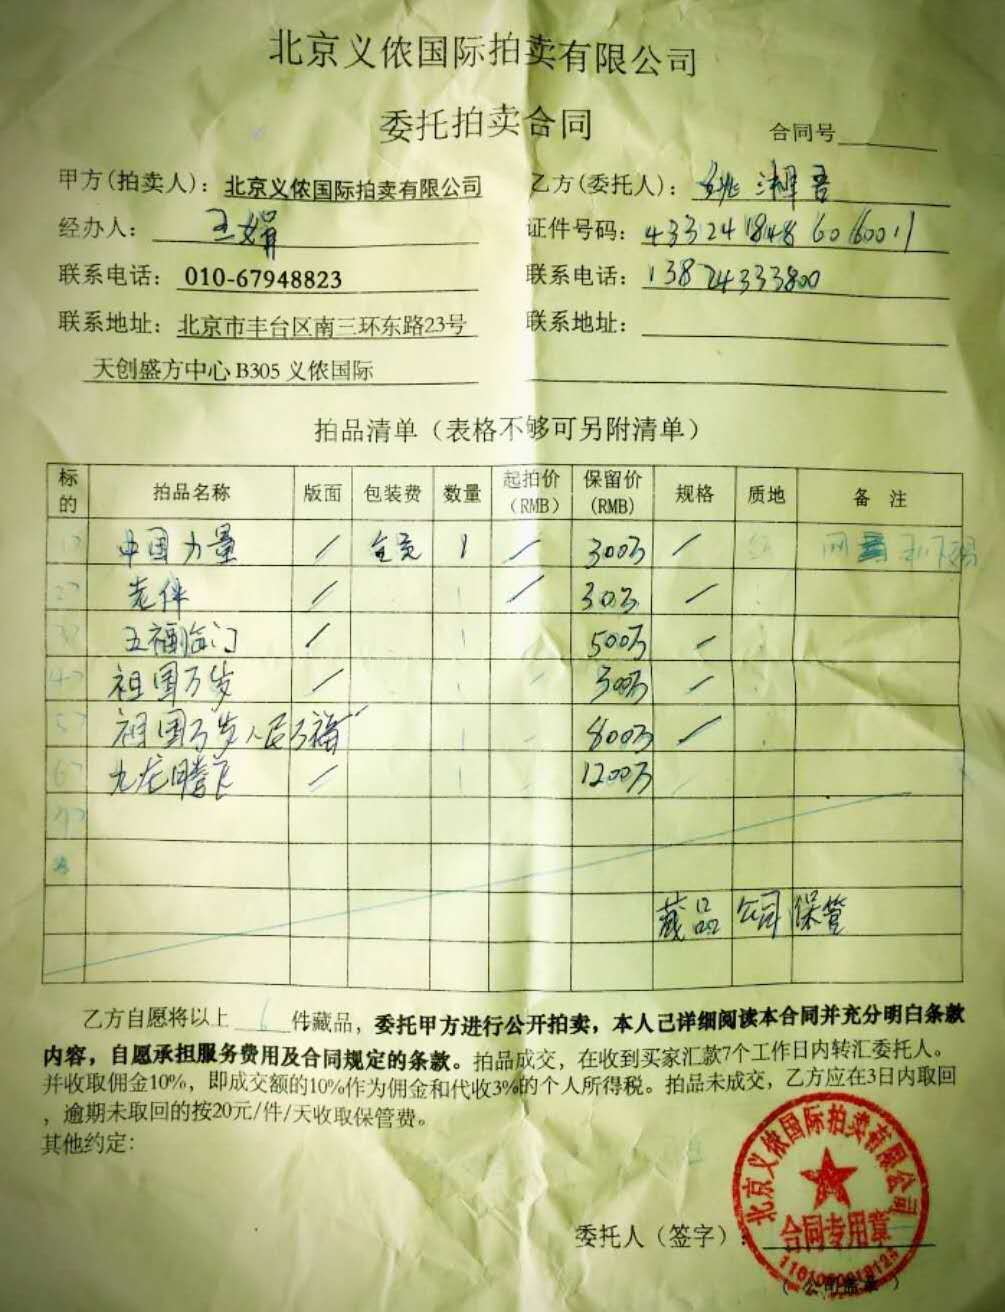 北京义侬国际拍卖有限公司
委托拍卖合同
合同号
甲方(拍卖人)：北京义侬国际拍卖有限公司 乙方(委托人)：姚湘晕
经办人：王娟 证件号码：
联系电话：010-67948823 联系电话：13874333800
联系地址：北京市丰台区南三环东路23号 联系地址：
天创盛方中心B305义侬国际
拍品清单（表格不够可另附清单）
标的 拍品名称 版面 包装费 数量 起拍价(RMB) 保留价(RMB) 规格 质地 备 注
1 中国力量 / 全免 1 / 300万 /
2 老伴 / 1 / 30万 /
3 五福临门 / 1 500万 /
4 祖国万岁 / 1 / 300万 /
5 祖国万岁人民万福 1 / 800万 /
6 九龙腾飞 / 1 / 1200万
7
8
藏品公司保管
乙方自愿将以上 6 件藏品，委托甲方进行公开拍卖，本人已详细阅读本合同并充分明白条款
内容，自愿承担服务费用及合同规定的条款。拍品成交，在收到买家汇款7个工作日内转汇委托人。
并收取佣金10%，即成交额的10%作为佣金和代收3%的个人所得税。拍品未成交，乙方应在3日内取回
，逾期未取回的按20元/件/天收取保管费。
其他约定：
北京义侬国际拍卖有限公司
合同专用章
委托人（签字）：